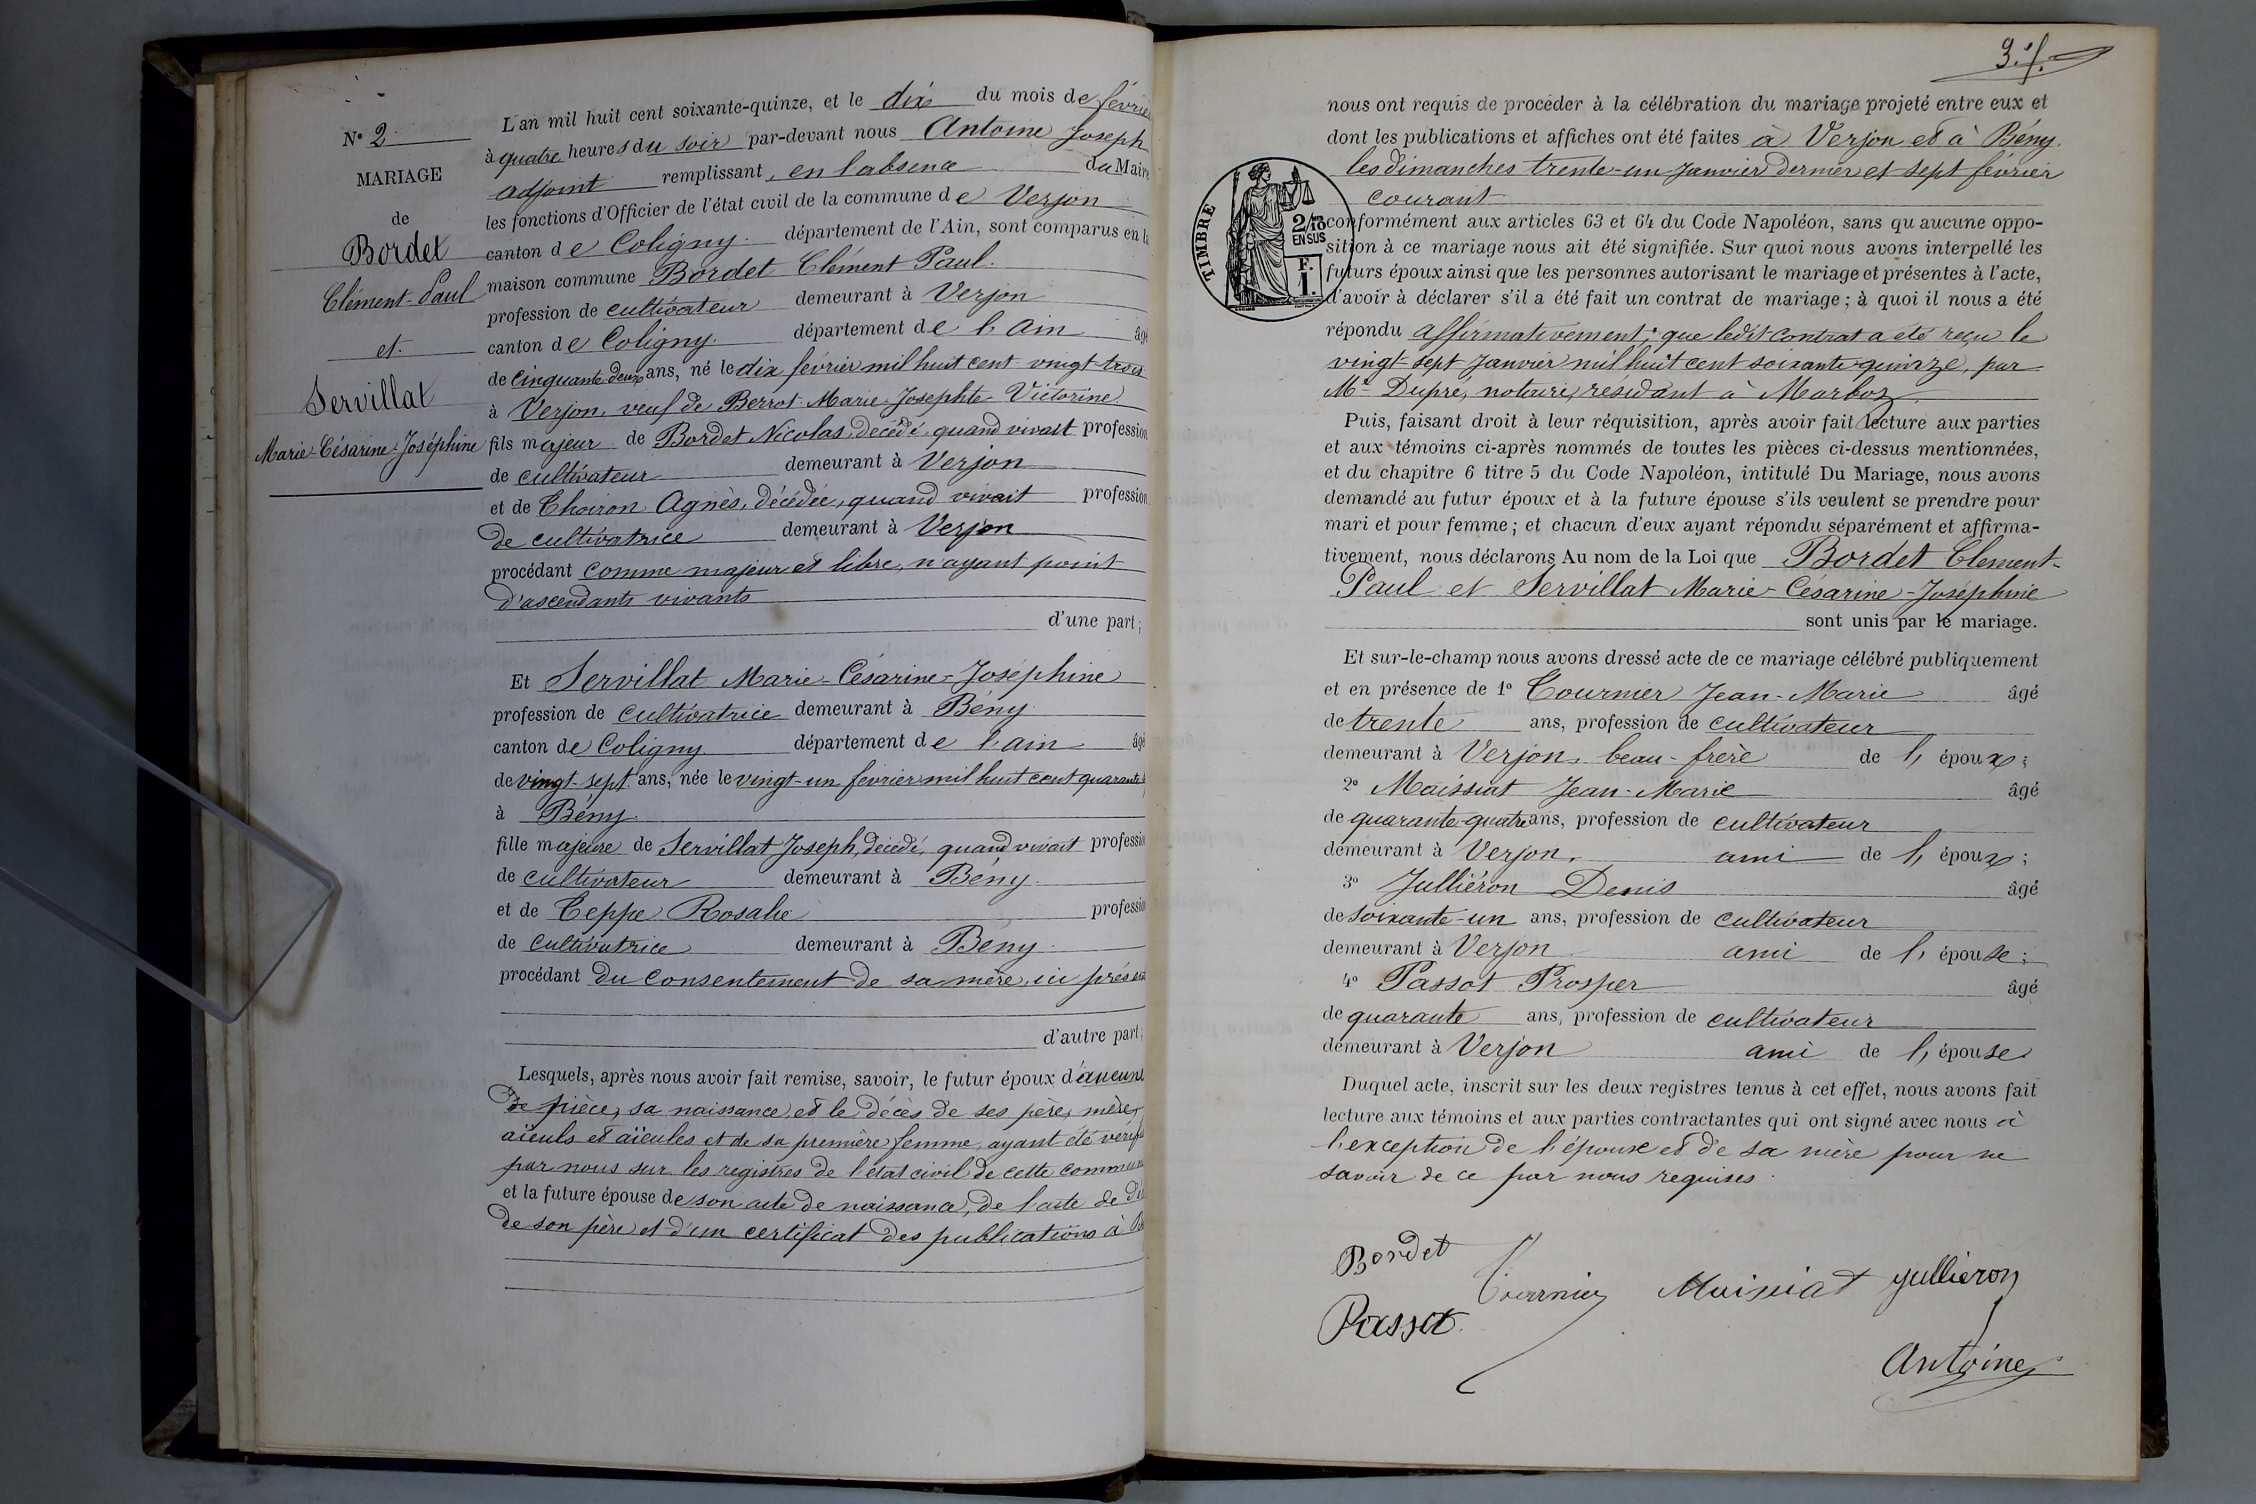 N° 2
MARIAGE
de
Bordet
Clément-Paul
et
Servillat
Marie-Césarine-Joséphine
L'an mil huit cent soixante-quinze, et le dix du mois de février
à quatre heures du soir par-devant nous Antoine Joseph
adjoint remplissant, en l'absence du Maire
les fonctions d'Officier de l'état civil de la commune de Verjon
canton de Coligny département de l'Ain, sont comparus en la
maison commune Bordet Clément Paul.
profession de cultivateur demeurant à Verjon
canton de Coligny département de l'Ain âgé
de cinquante deux ans, né le dix février mil huit cent vingt-trois
à Verjon, veuf de Berrot Marie-Josephte-Victorine
fils majeur de Bordet Nicolas, décédé quand vivait profession
de cultivateur demeurant à Verjon
et de Choiron Agnès, décédée, quand vivait profession
de cultivatrice demeurant à Verjon
procédant comme majeur et libre, n'ayant point
d'ascendants vivants
d'une part;
Et Servillat Marie-Césarine-Joséphine
profession de cultivatrice demeurant à Bény
canton de Coligny département de l'ain âgé
de vingt-sept ans, née le vingt-un février mil huit cent quarante
à Bény
fille majeure de Servillat Joseph, décédé, quand vivait profession
de cultivateur demeurant à Bény
et de Teppe Rosalie profession
de cultivatrice demeurant à Bény
procédant du consentement de sa mère, ici présen
d'autre part;
Lesquels, après nous avoir fait remise, savoir, le futur époux d'aucune
de pièce, sa naissance et le décès de ses père, mère,
aïeuls et aïeules et de sa première femme, ayant été vérif
par nous sur les registres de l'état civil de cette commun
et la future épouse de son acte de naissance, de l'acte de dé
de son père et d'un certificat des publications à Bé
3.f.
nous ont requis de procéder à la célébration du mariage projeté entre eux et
dont les publications et affiches ont été faites à Verjon et à Bény
les dimanches trente-un janvier dernier et sept février
courant
TIMBRE
2/10
EN SUS
F.
1.
conformément aux articles 63 et 64 du Code Napoléon, sans qu aucune oppo-
sition à ce mariage nous ait été signifiée. Sur quoi nous avons interpellé les
futurs époux ainsi que les personnes autorisant le mariage et présentes à l'acte,
d'avoir à déclarer s'il a été fait un contrat de mariage; à quoi il nous a été
répondu affirmativement, que ledit contrat a été reçu le
vingt-sept janvier mil huit cent soixante-quinze, par
Me Dupré, notaire, résidant à Marboz
Puis, faisant droit à leur réquisition, après avoir fait lecture aux parties
et aux témoins ci-après nommés de toutes les pièces ci-dessus mentionnées,
et du chapitre 6 titre 5 du Code Napoléon, intitulé Du Mariage, nous avons
demandé au futur époux et à la future épouse s'ils veulent se prendre pour
mari et pour femme; et chacun d'eux ayant répondu séparément et affirma-
tivement, nous déclarons Au nom de la Loi que Bordet Clement-
Paul et Servillat Marie-Césarine-Joséphine
sont unis par le mariage.
Et sur-le-champ nous avons dressé acte de ce mariage célébré publiquement
et en présence de 1° Tournier Jean-Marie âgé
de trente ans, profession de cultivateur
demeurant à Verjon, beau-frère de l'époux;
2° Maissiat Jean-Marie âgé
de quarante-quatre ans, profession de cultivateur
demeurant à Verjon, ami de l'époux;
3° Julliéron Denis âgé
de soixante-un ans, profession de cultivateur
demeurant à Verjon ami de l'épouse;
4° Passot Prosper âgé
de quarante ans, profession de cultivateur
demeurant à Verjon ami de l'épouse
Duquel acte, inscrit sur les deux registres tenus à cet effet, nous avons fait
lecture aux témoins et aux parties contractantes qui ont signé avec nous à
l'exception de l'épouse et de sa mère pour ne
savoir de ce par nous requises.
Bordet
Tournier Maissiat Jullieron
Passot
Antoine